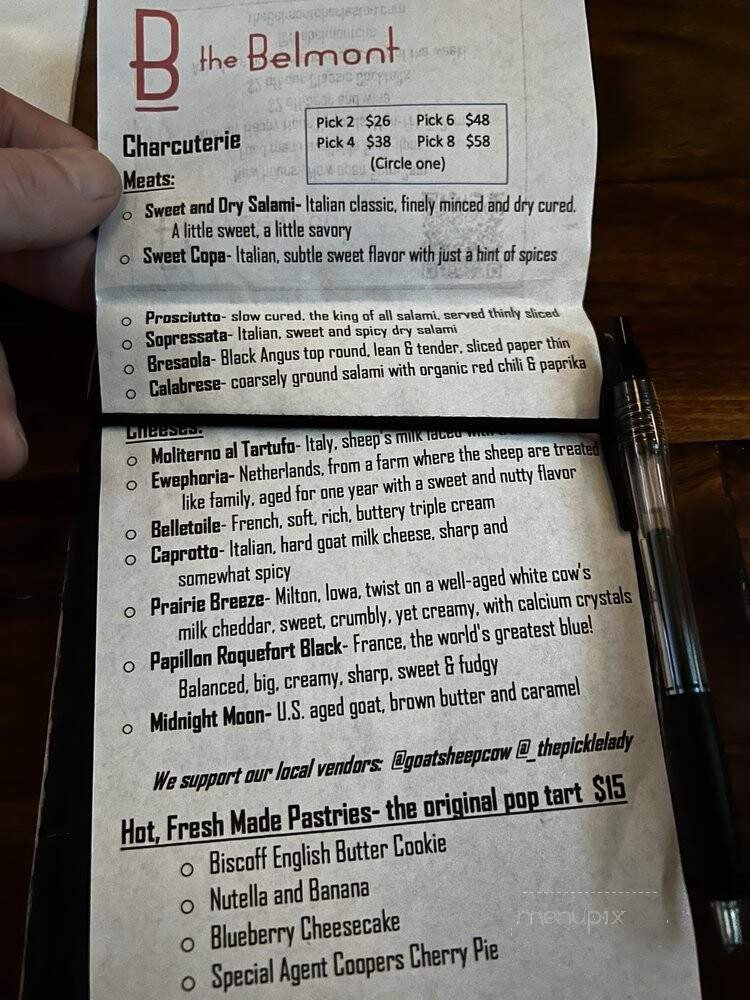 B the Belmont
Charcuterie
Pick 2 $26 Pick 6 $48
Pick 4 $38 Pick 8 $58
(Circle one)
Meats:
Sweet and Dry Salami- Italian classic, finely minced and dry cured.
A little sweet, a little savory
Sweet Copa- Italian, subtle sweet flavor with just a hint of spices
Prosciutto- slow cured, the king of all salami, served thinly sliced
Sopressata- Italian, sweet and spicy dry salami
Bresaola- Black Angus top round, lean & tender, sliced paper thin
Calabrese- coarsely ground salami with organic red chili & paprika
Cheeses:
Moliterno al Tartufo- Italy, sheep's milk laced with
Ewephoria- Netherlands, from a farm where the sheep are treated
like family, aged for one year with a sweet and nutty flavor
Belletoile- French, soft, rich, buttery triple cream
Caprotto- Italian, hard goat milk cheese, sharp and
somewhat spicy
Prairie Breeze- Milton, Iowa, twist on a well-aged white cow's
milk cheddar, sweet, crumbly, yet creamy, with calcium crystals
Papillon Roquefort Black- France, the world's greatest blue!
Balanced, big, creamy, sharp, sweet & fudgy
Midnight Moon- U.S. aged goat, brown butter and caramel
We support our local vendors: @goatsheepcow @_thepicklelady
Hot, Fresh Made Pastries- the original pop tart $15
Biscoff English Butter Cookie
Nutella and Banana
Blueberry Cheesecake
Special Agent Coopers Cherry Pie
menupix